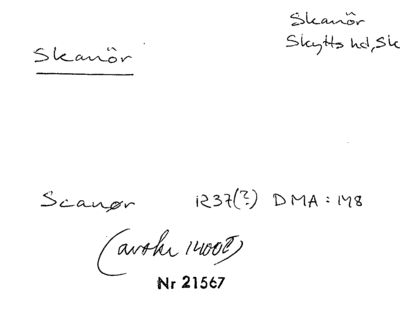 Skanör
Skytts hd, Sk
Skanör
Scanør 1237(?) DMA:1 48
(avskr 1400t)
Nr 21567